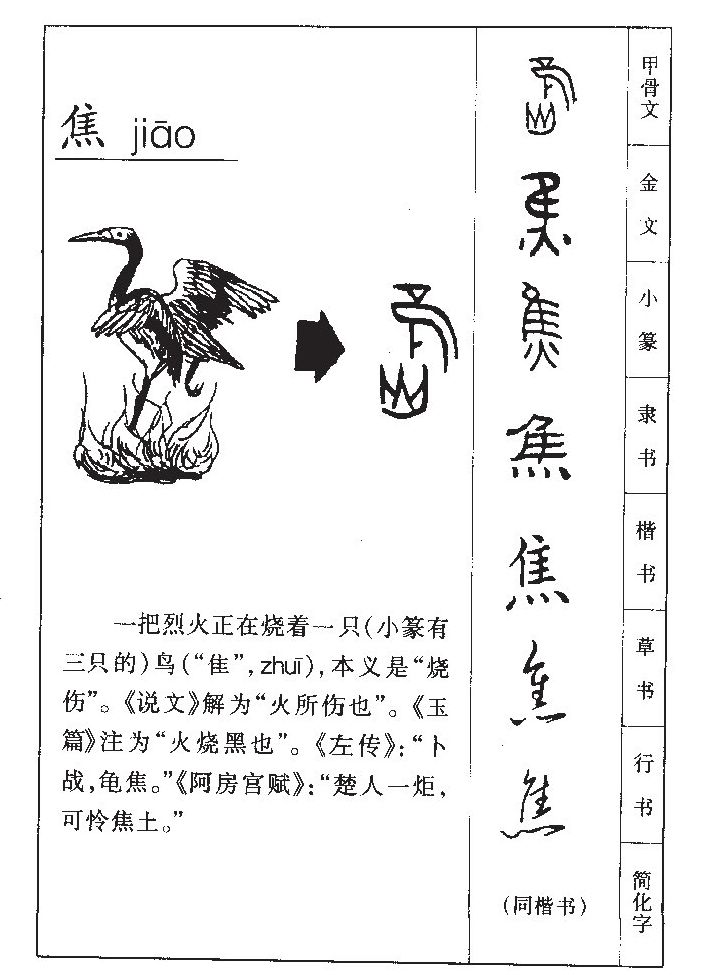 焦 jiāo
一把烈火正在烧着一只(小篆有
三只的)鸟(“隹”,zhuī),本义是“烧
伤”。《说文》解为“火所伤也”。《玉
篇》注为“火烧黑也”。《左传》:“卜
战,龟焦。”《阿房宫赋》:“楚人一炬,
可怜焦土。”
焦 甲骨文
焦 金文
焦 小篆
焦 隶书
焦 楷书
焦 草书
焦 行书
(同楷书) 简化字